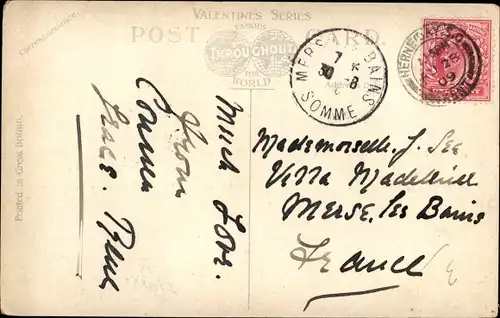 VALENTINE'S SERIES
FAMOUS
THROUGHOUT
THE
WORLD
POST CARD.
Correspondence.
Printed in Great Britain.
Much Love.
from
MERS-LES-BAINS
7
30 -8
SOMME
HERNE BAY S.O
28
09
Mademoiselle J. Lee
Villa Madeleine
Merse, Les Bains
France